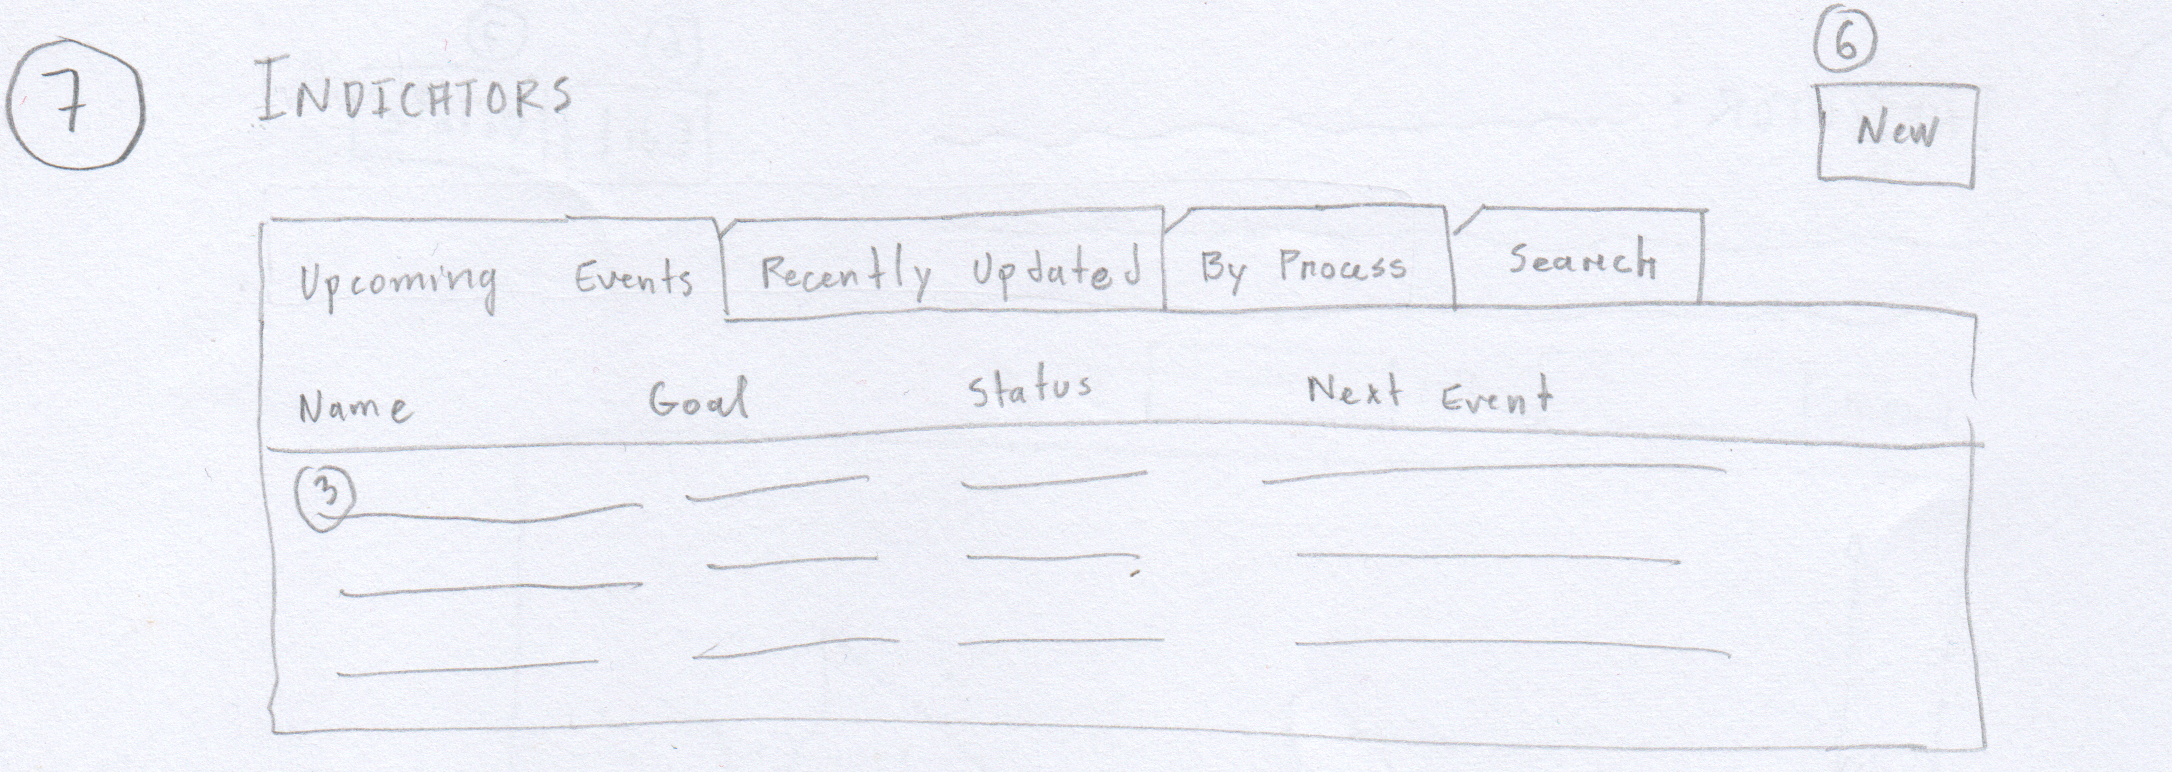 6
7 INDICATORS
New
Upcoming Events Recently Updated By Process Search
Name Goal Status Next Event
3